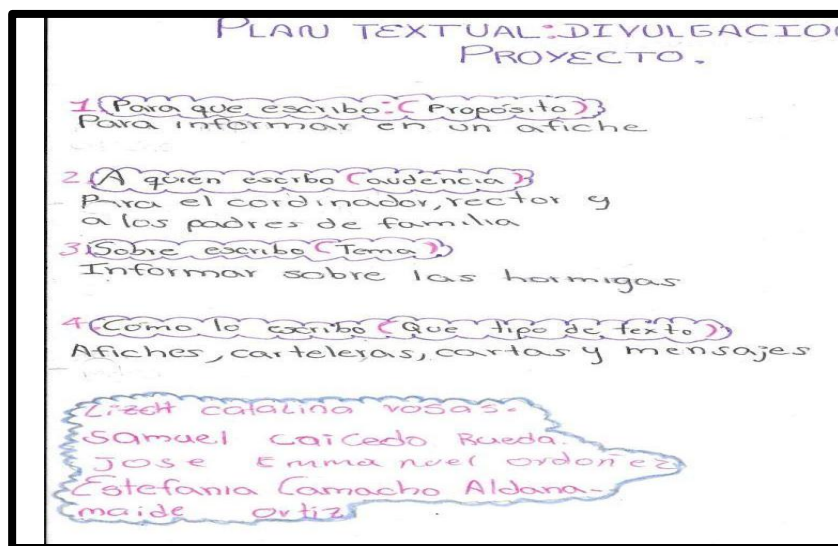 PLAN TEXTUAL: DIVULGACIO
PROYECTO.
1. Para que escribo: (Proposito)
Para informar en un afiche
2. A quien escrbo (audencia)
Para el cordinador, rector y
a los padres de familia
3. Sobre escribo (Tema)
Informar sobre las hormigas
4. Como lo escribo (Que tipo de texto)
Afiches, carteleras, cartas y mensajes
Lizett catalina rosas.
Samuel Caicedo Rueda.
Jose Emmanuel ordoñez
Estefania Camacho Aldana-
maide ortiz